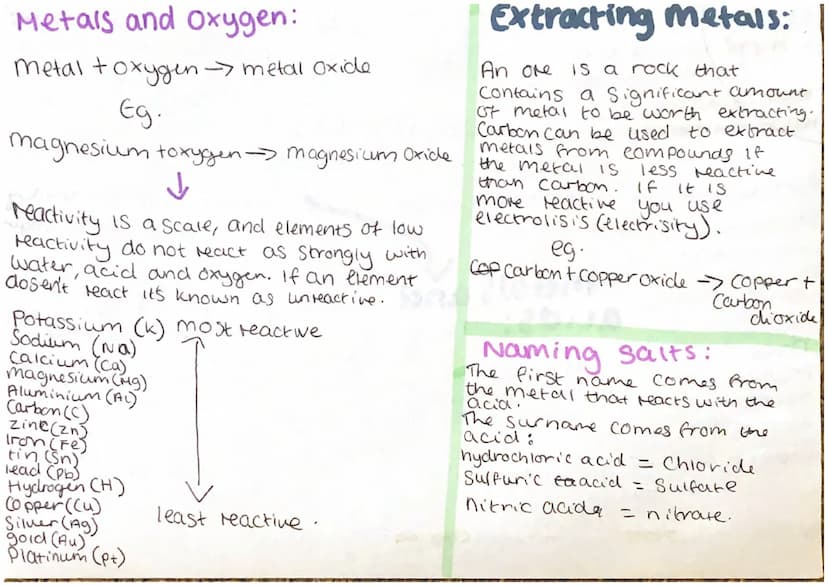 Metals and Oxygen:
metal + oxygen → metal oxide
Eg.
magnesium + oxygen → magnesium oxide
↓
reactivity is a scale, and elements of low
reactivity do not react as strongly with
water, acid and oxygen. If an element
dosent react its known as unreactive.
Potassium (K) most reactive
Sodium (Na)
Calcium (Ca)
Magnesium (Mg)
Aluminium (Al)
Carbon (C)
Zinc (Zn)
Iron (Fe)
tin (Sn)
lead (Pb)
Hydrogen (H)
Copper (Cu)
Silver (Ag)
gold (Au)
Platinum (Pt)
least reactive.
Extracting Metals:
An ore is a rock that
contains a significant amount
of metal to be worth extracting.
Carbon can be used to extract
metals from compounds if
the metal is less reactive
than carbon. If it is
more reactive you use
electrolisis (electrisity).
eg.
cop carbon + copper oxide → copper +
carbon
dioxide
Naming salts:
The first name comes from
the metal that reacts with the
acid.
The surname comes from the
acid:
hydrochloric acid = Chloride
Sulfuric acid = Sulfate
nitric acid = nitrate.